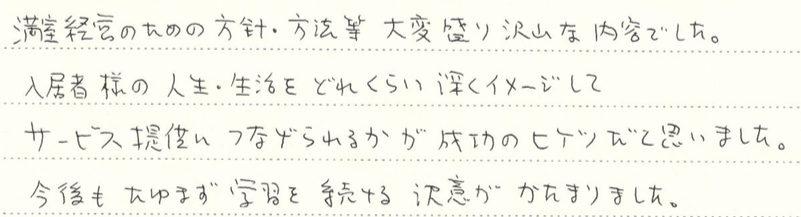 満室経営のための方針・方法等 大変盛り沢山な内容でした。
入居者様の人生・生活をどれくらい深くイメージして
サービス提供につなげられるかが成功のヒケツだと思いました。
今後もたゆまず学習を続ける決意がかたまりました。